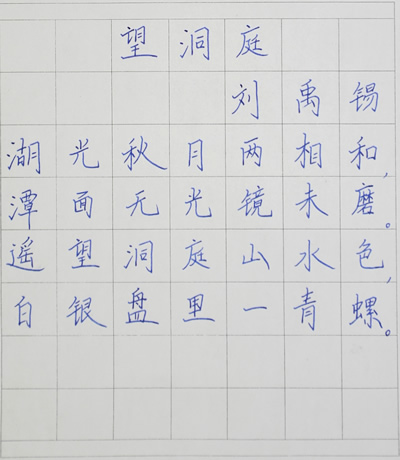 望洞庭
刘禹锡
湖光秋月两相和,
潭面无光镜未磨。
遥望洞庭山水色,
白银盘里一青螺。